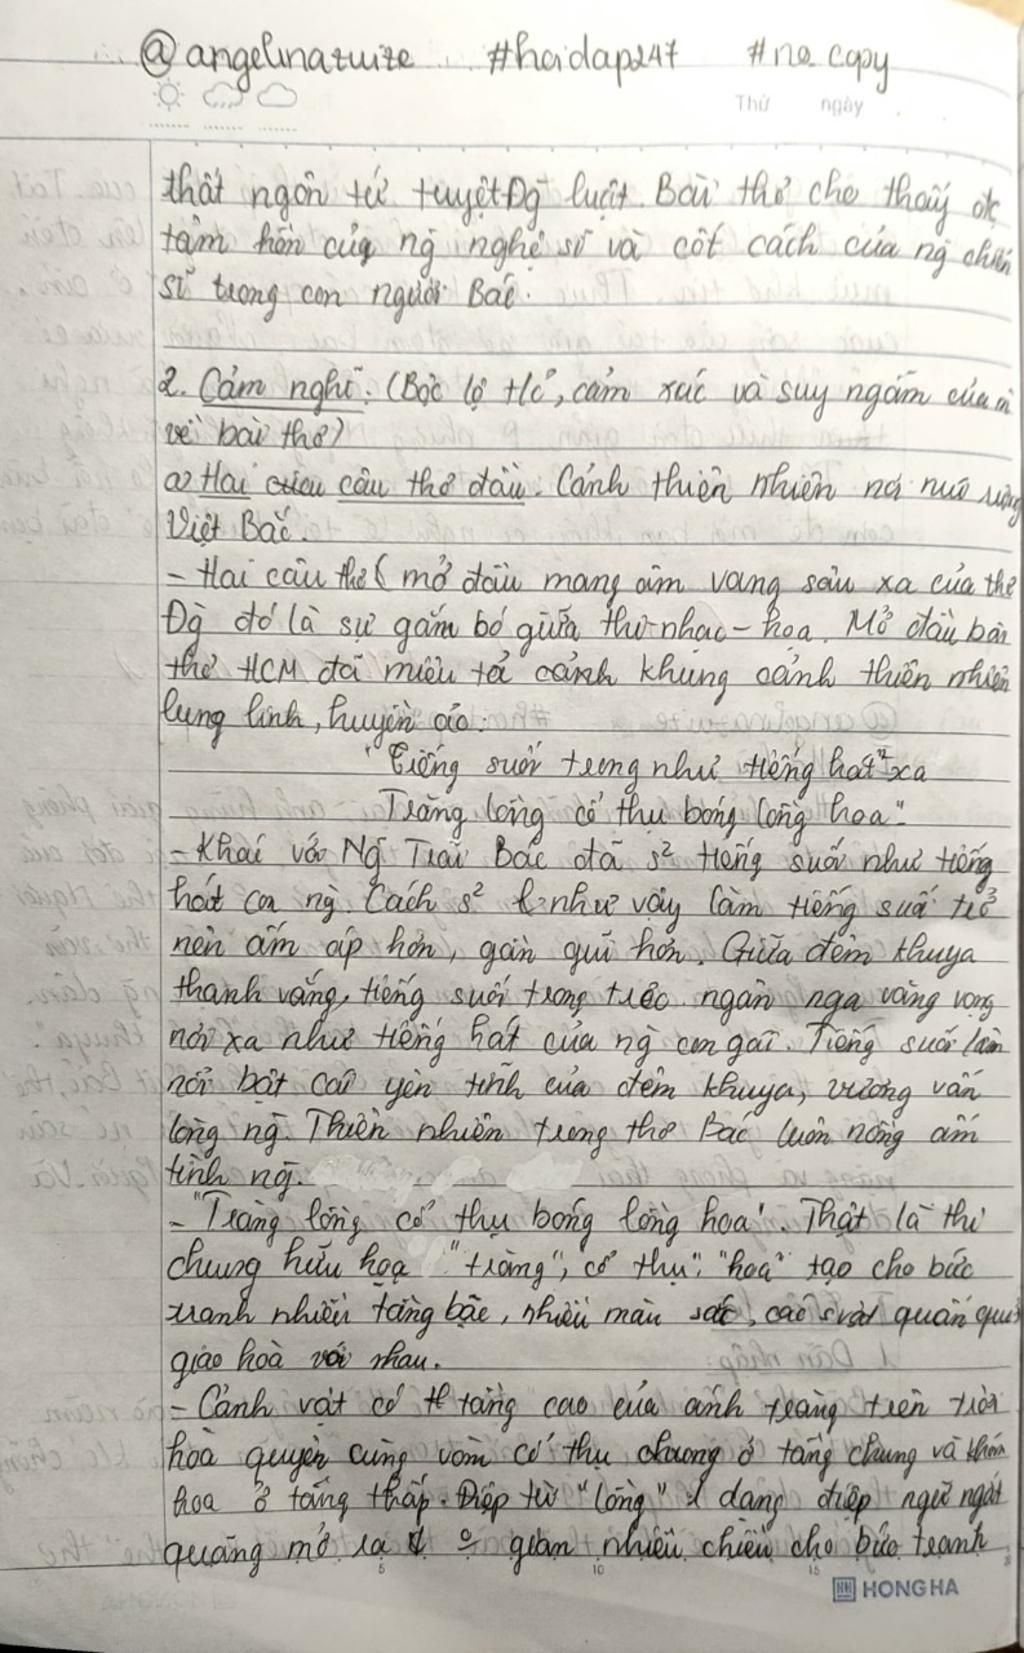 @angelinazuize #hoidap247 #no copy
Thứ ngày
thất ngôn tứ tuyệt Đg luật. Bài thơ cho thấy đc
tâm hồn của ng nghệ sĩ và cốt cách của ng chiến
sĩ trong con người Bác.
2. Cảm nghĩ: (Bộc lộ t/c, cảm xúc và suy ngẫm của m
về bài thơ)
a) Hai câu thơ đầu. Cảnh thiên nhiên nơi núi rừng
Việt Bắc.
- Hai câu thơ mở đầu mang âm vang sâu xa của thơ
Đg đó là sự gắn bó giữa thơ-nhạc-họa. Mở đầu bài
thơ HCM đã miêu tả cảnh khung cảnh thiên nhiên
lung linh, huyền ảo:
"Tiếng suối trong như tiếng hát xa
Trăng lồng cổ thụ bóng lồng hoa."
- Khác với Ng Trãi Bác đã s² tiếng suối như tiếng
hát con ng. Cách s² như vậy làm tiếng suối trở
nên ấm áp hơn, gần gũi hơn. Giữa đêm khuya
thanh vắng, tiếng suối trong trẻo ngân nga vang vọng
nơi xa như tiếng hát của ng con gái. Tiếng suối làm
nổi bật cái yên tĩnh của đêm khuya, vương vấn
lòng ng. Thiên nhiên trong thơ Bác luôn nồng ấm
tình ng.
- "Trăng lồng cổ thụ bóng lồng hoa". Thật là thi
chung hữu họa "trăng", cổ thụ", "hoa" tạo cho bức
tranh nhiều tầng bậc, nhiều màu sắc, các sự vật quấn quýt
giao hoà với nhau.
- Cảnh vật có tầng cao của ánh trăng trên trời
hoà quyện cùng vòm cổ thụ ở tầng chung và khóm
hoa ở tầng thấp. Điệp từ "lồng" dạng điệp ngữ ngắt
quãng mở ra gian nhiều chiều cho bức tranh
5 10 15
HONG HA